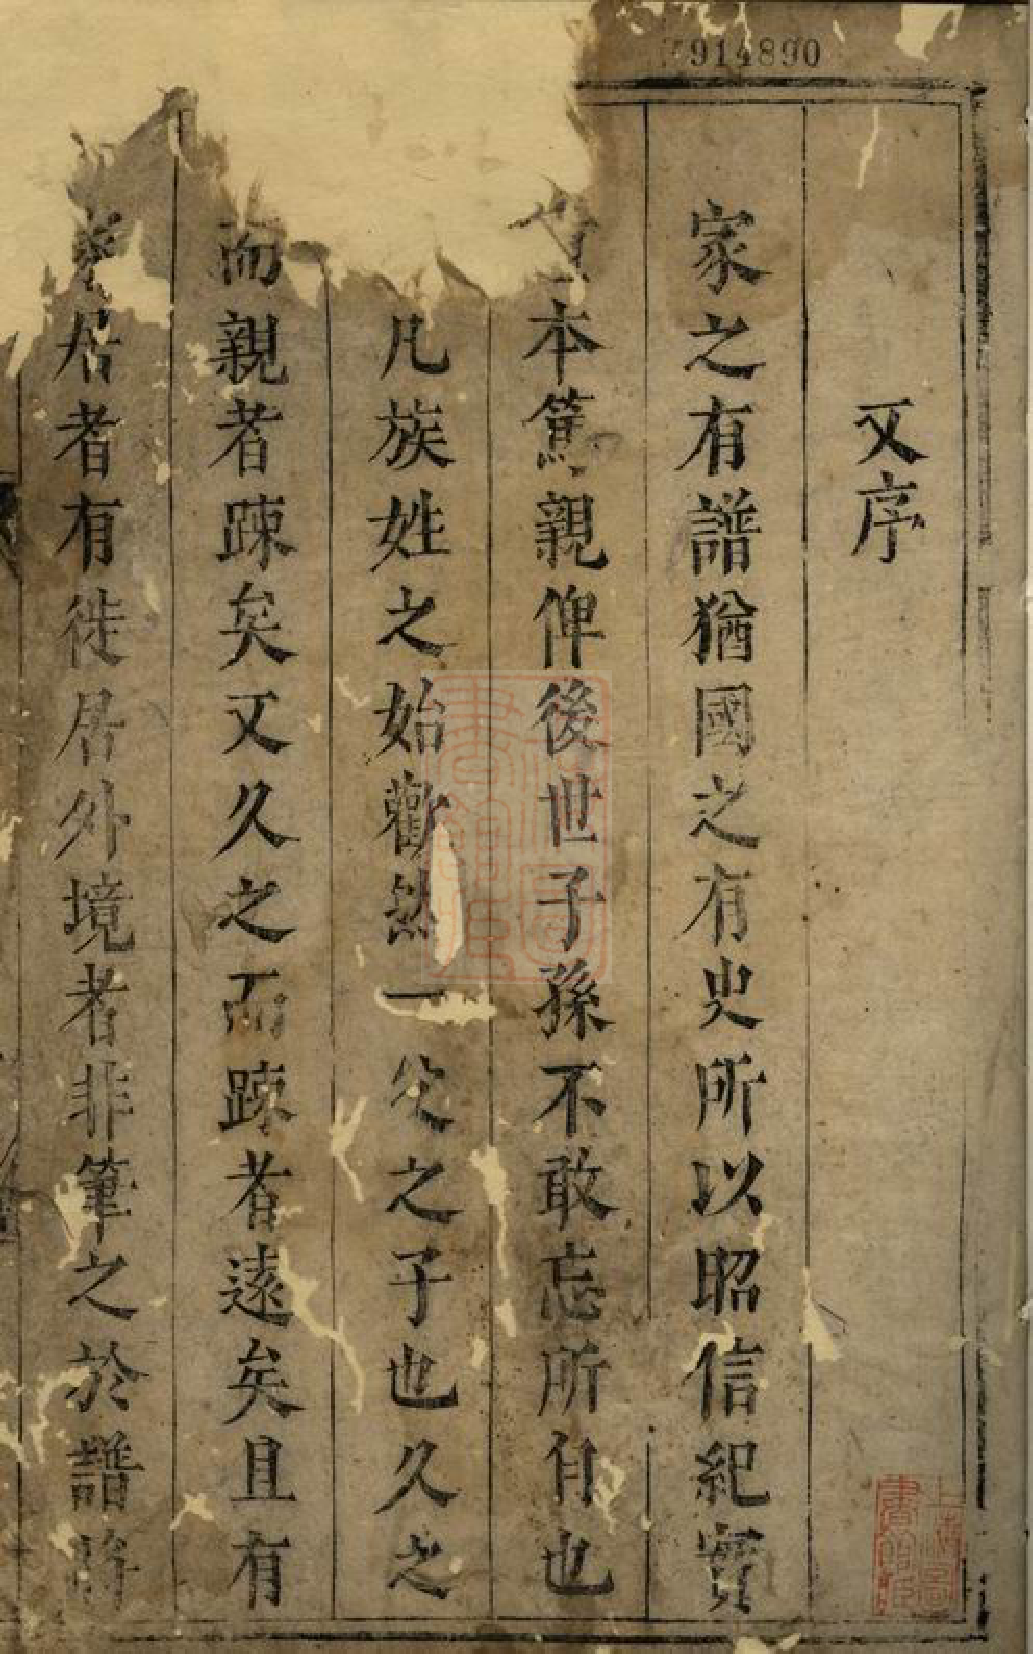 914890
又序
家之有譜猶國之有史所以昭信紀實
本篤親俾後世子孫不敢忘所自也
凡族姓之始歡然一父之子也久之
而親者踈矣又久之而踈者遠矣且有
居者有徙居外境者非筆之於譜將
上海圖書館藏